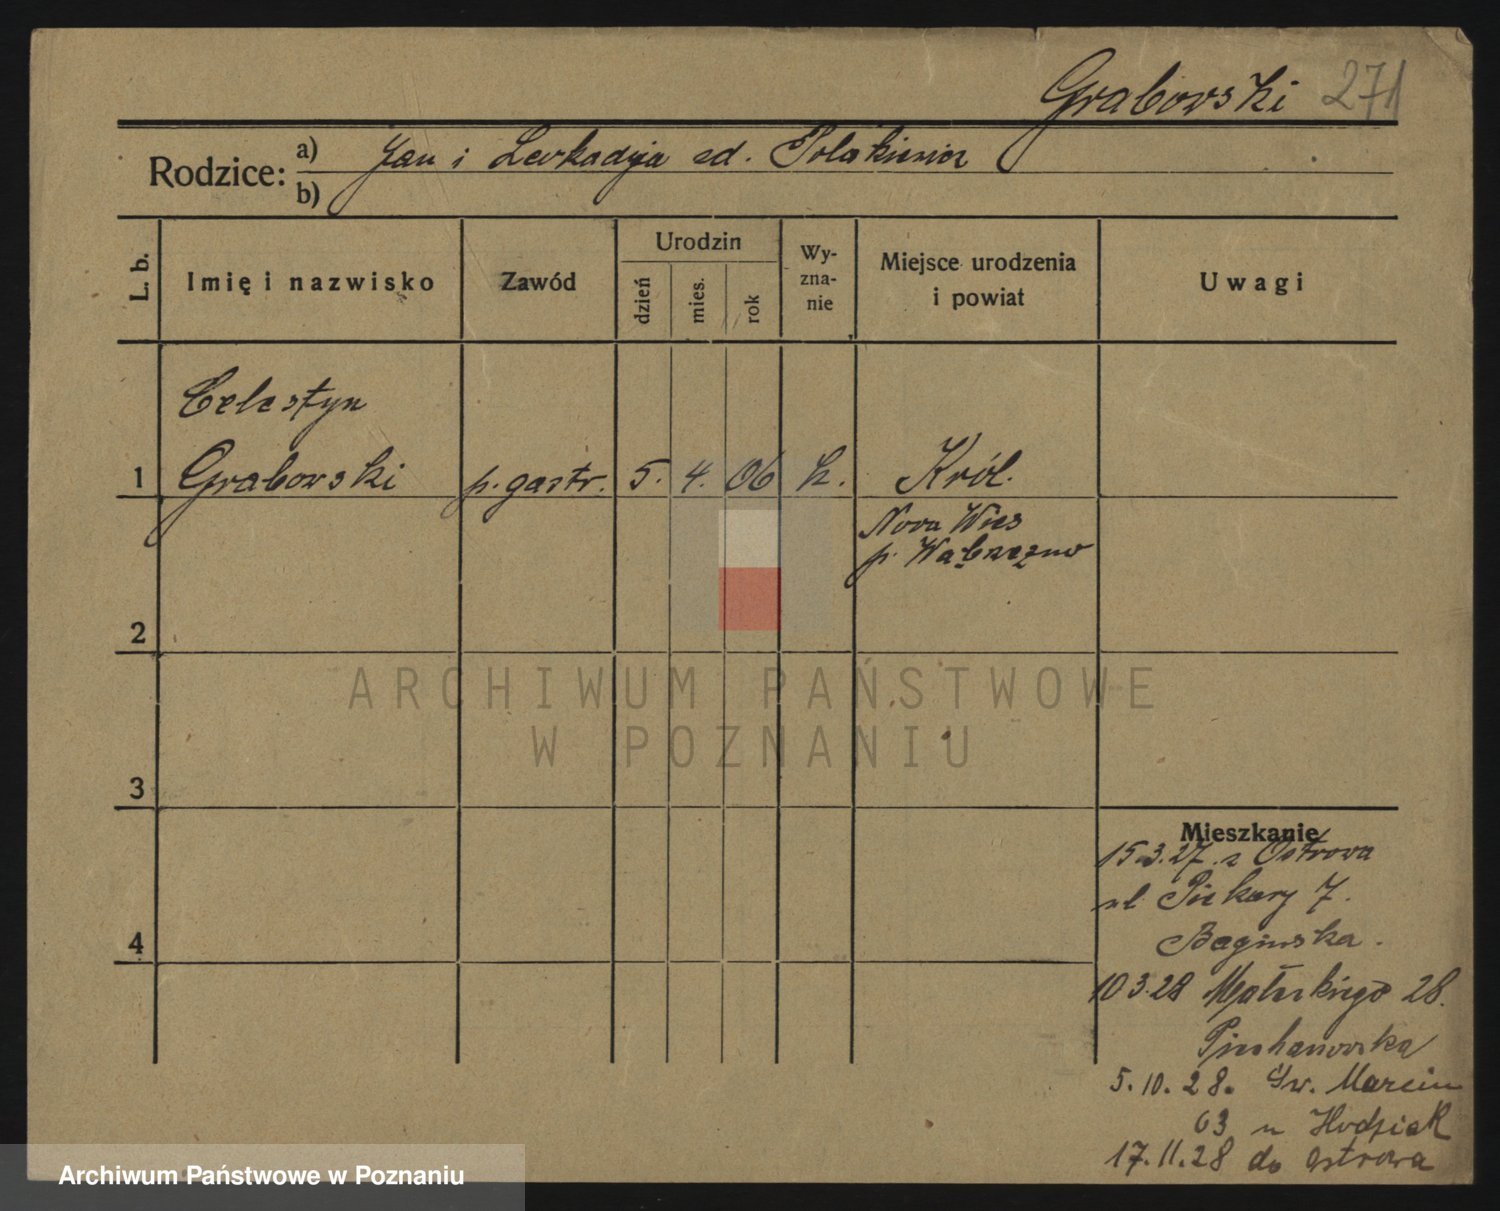 Grabowski 271
Rodzice: a) Jan i Leokadyja zd. Polakiewicz
b)
L. b.
Imię i nazwisko
Zawód
Urodzin
dzień
mies.
rok
Wy-
zna-
nie
Miejsce urodzenia
i powiat
Uwagi
Celestyn
1 Grabowski p. gastr. 5. 4. 06 k. Król.
Nowa Wieś
p. Wąbrzeźno
2
ARCHIWUM PAŃSTWOWE
W POZNANIU
3
Mieszkanie
15.3.27. z Ostrowa
ul Piekary 7.
Bagińska.
4
10 3.28 Małeckiego 28.
5.10.28. Św. Marcin
63 u
17.11.28 do Ostrowa
Archiwum Państwowe w Poznaniu